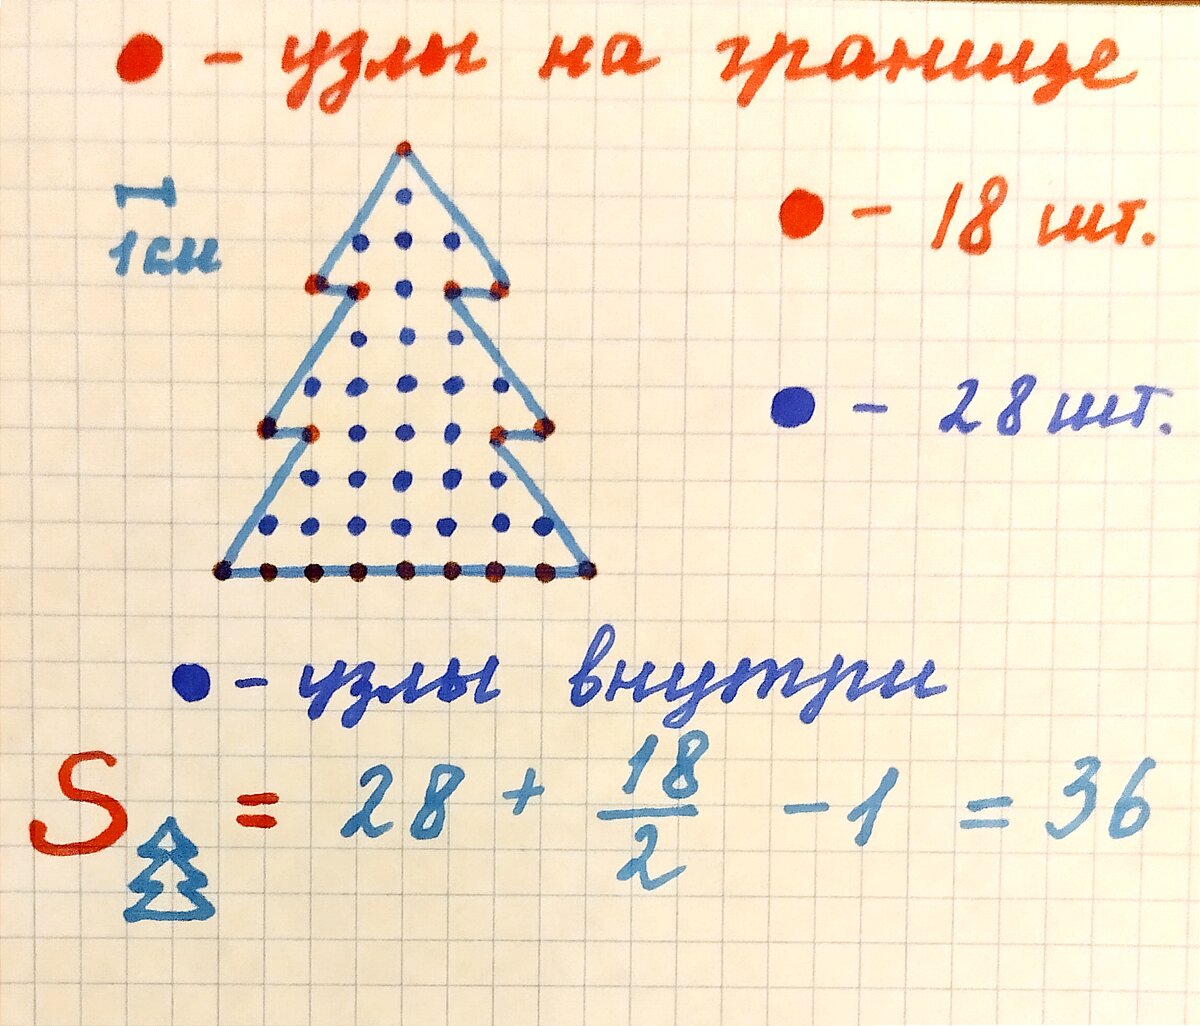 - узлы на границе
1 см
- 18 шт.
- 28 шт.
- узлы внутри
S = 28 + 18/2 - 1 = 36